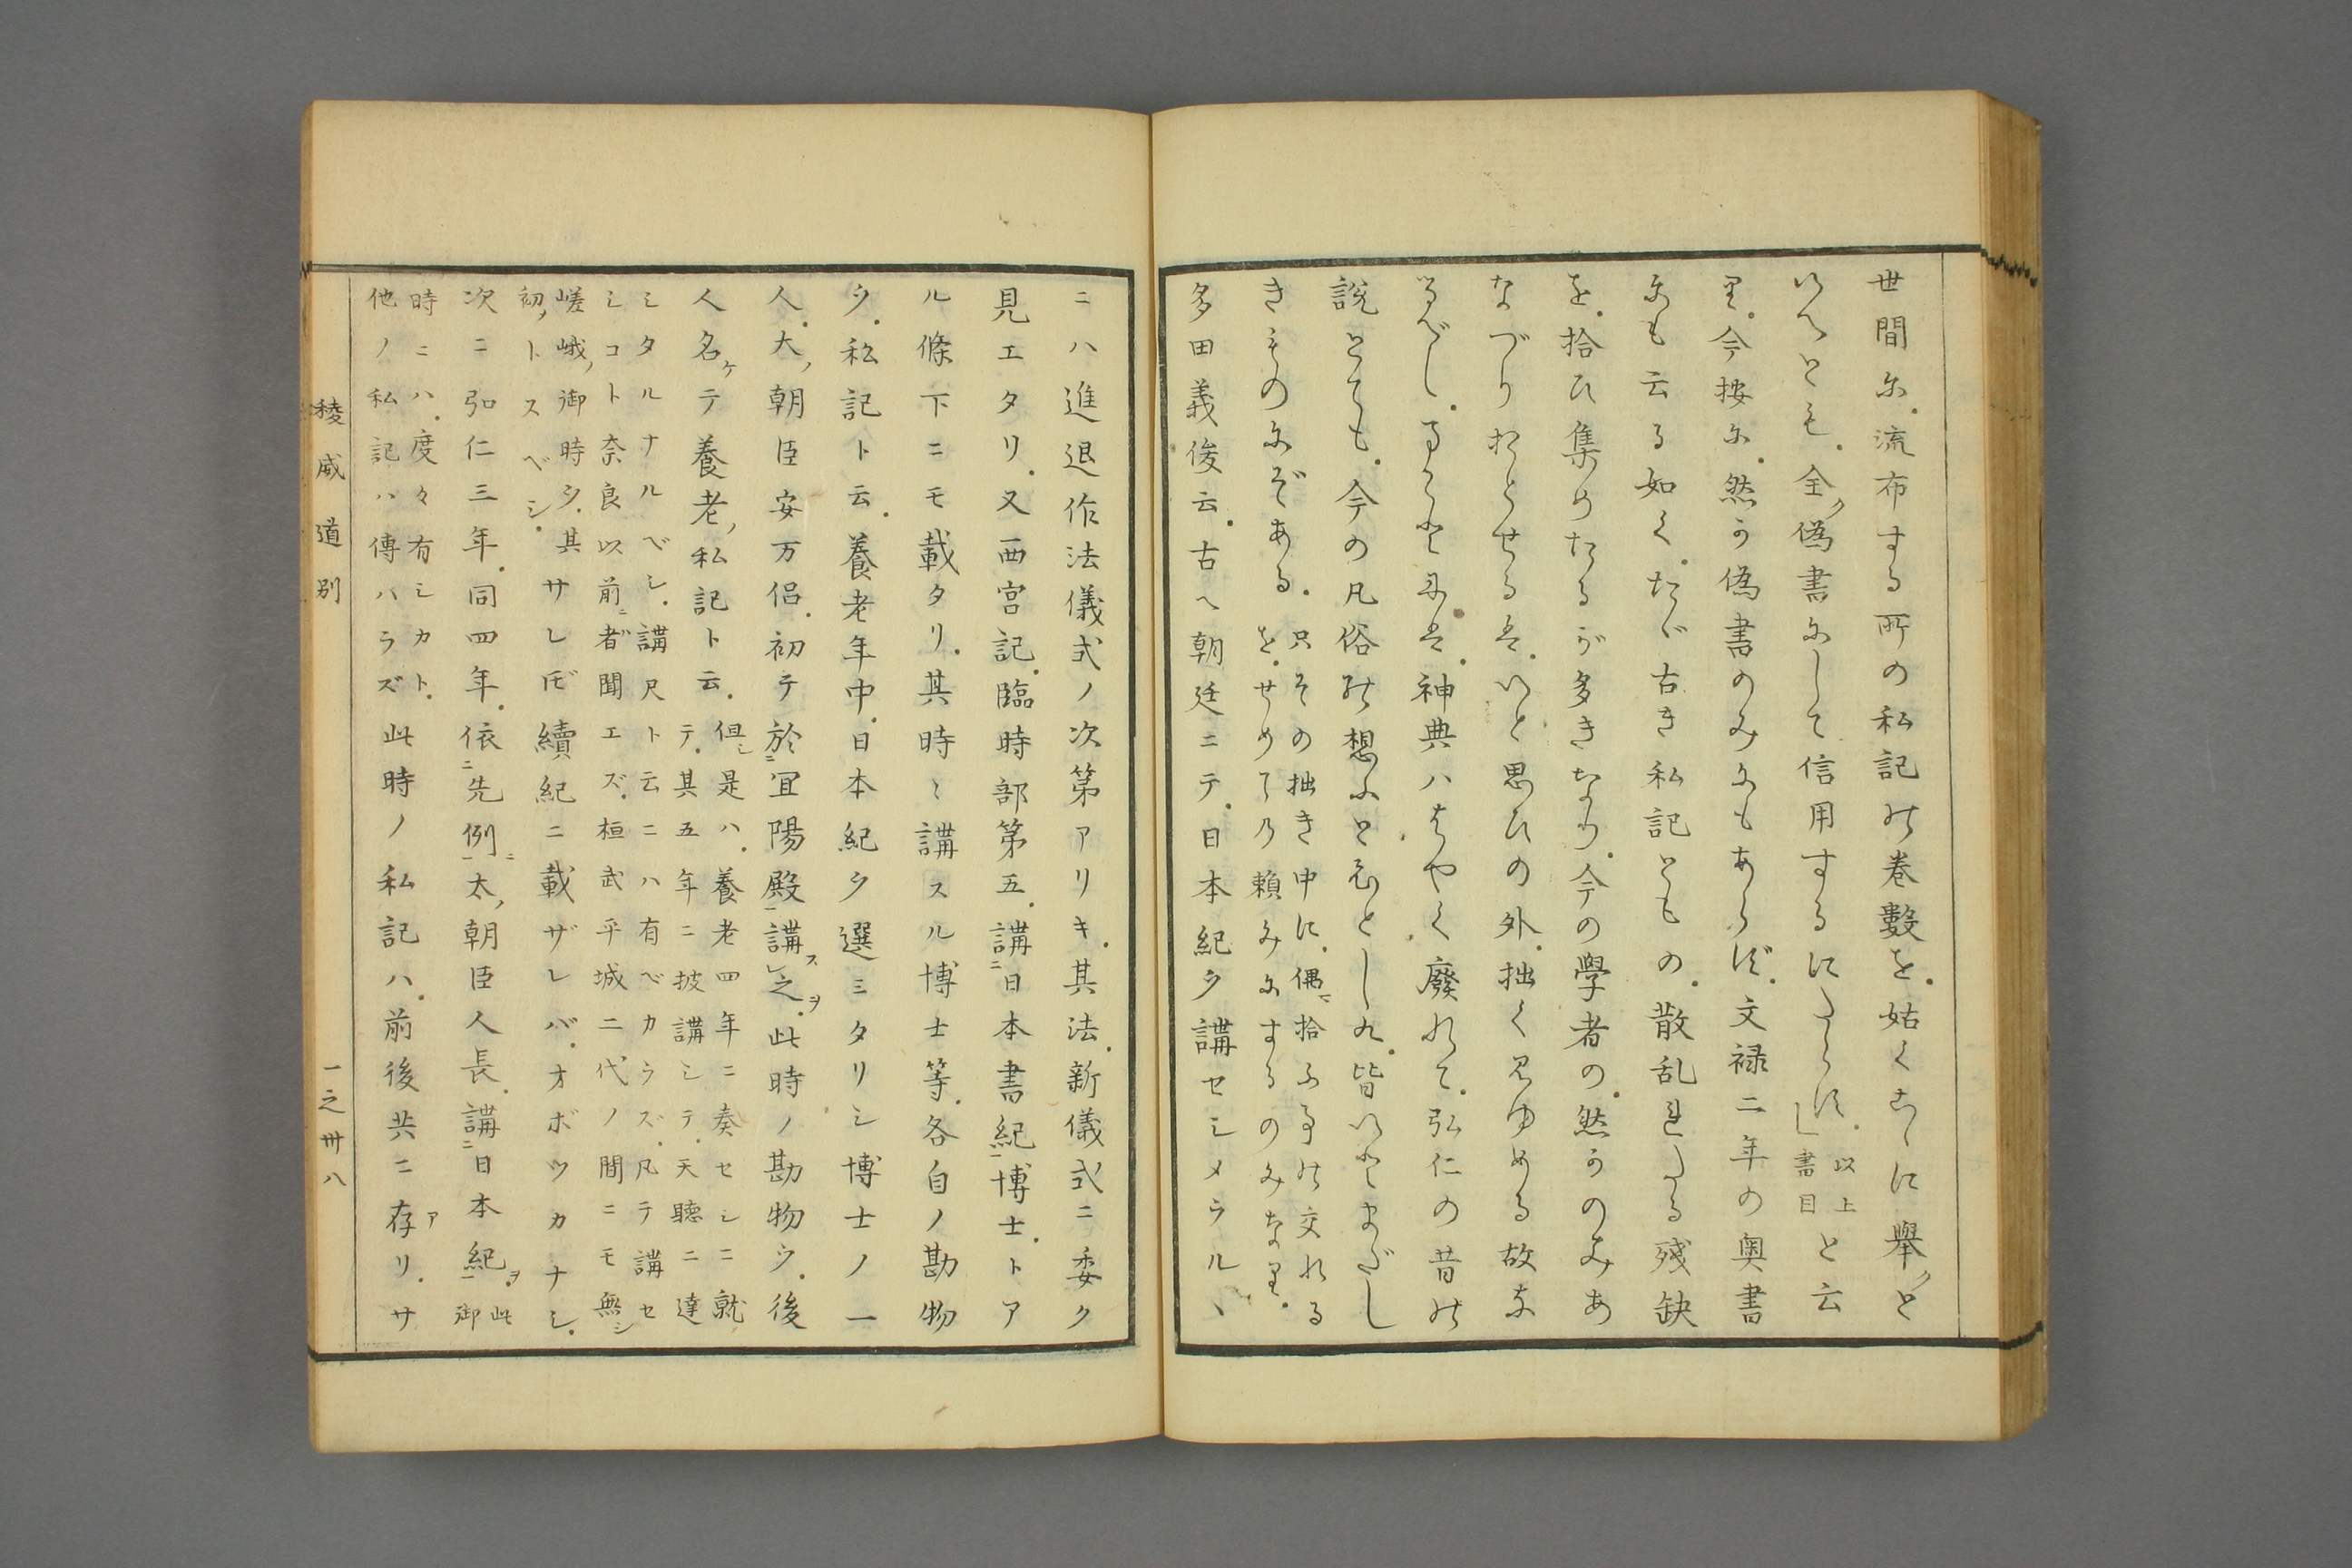 世間尓。流布する所の私記の巻數を。姑くこゝに擧ケと
いへとも。全ク僞書にして信用するにたらず。」以上書目と云
り。今按に。然る僞書のみにもあらず。文禄二年の奥書
にも云る如く。たゞ古き私記ともの。散乱れたる殘缺
を。拾ひ集めたるが多きなり。今の學者の。然るのみあ
なづりおとせるは。いと思ひの外。拙く見ゆめる故な
るべし。
神典ハはやく。廢れて。弘仁の昔の
説とても。今の凡俗の想ふと
きものにぞある。只その拙き中に。偶ニ拾ふ事の交れる
を。せめての頼みにするのみなり。
多田義俊云。古ヘ朝廷ニテ。日本紀ヲ講セシメラルヽ
ニハ進退作法儀式ノ次第アリキ。其法。新儀式ニ委ク
見エタリ。又西宮記。臨時部第五。講ニ日本書紀一博士。トア
ル條下ニモ載タリ。其時〻講スル博士等。各自ノ勘物
ヲ。私記ト云。養老年中。日本紀ヲ選ミタリシ博士ノ一
人。大ノ朝臣安万侶。初テ於ニ宜陽殿一講スレ之ヲ。此時ノ勘物ヲ。後
人名ケテ養老ノ私記ト云。但シ是ハ。養老四年ニ奏セシニ就
テ。其五年ニ披講シテ。天聽ニ達
シタルナルベシ。講尺ト云ニハ有ベカラズ。凡テ講セ
シコト奈良以前ニハ者聞エズ。桓武平城二代ノ間ニモ無シ
嵯峨ノ御時ヲ。其
初ノトスベシ。サレド續紀ニ載ザレバ。オボツカナシ。
次ニ弘仁三年。同四年。依ニ先例一太ノ朝臣人長。講ニ日本紀一ヲ。此御
時ニハ。度々有シカト。
他ノ私記ハ傳ハラズ此時ノ私記ハ。前後共ニ存リ。サ
稜威道別
一之卅八